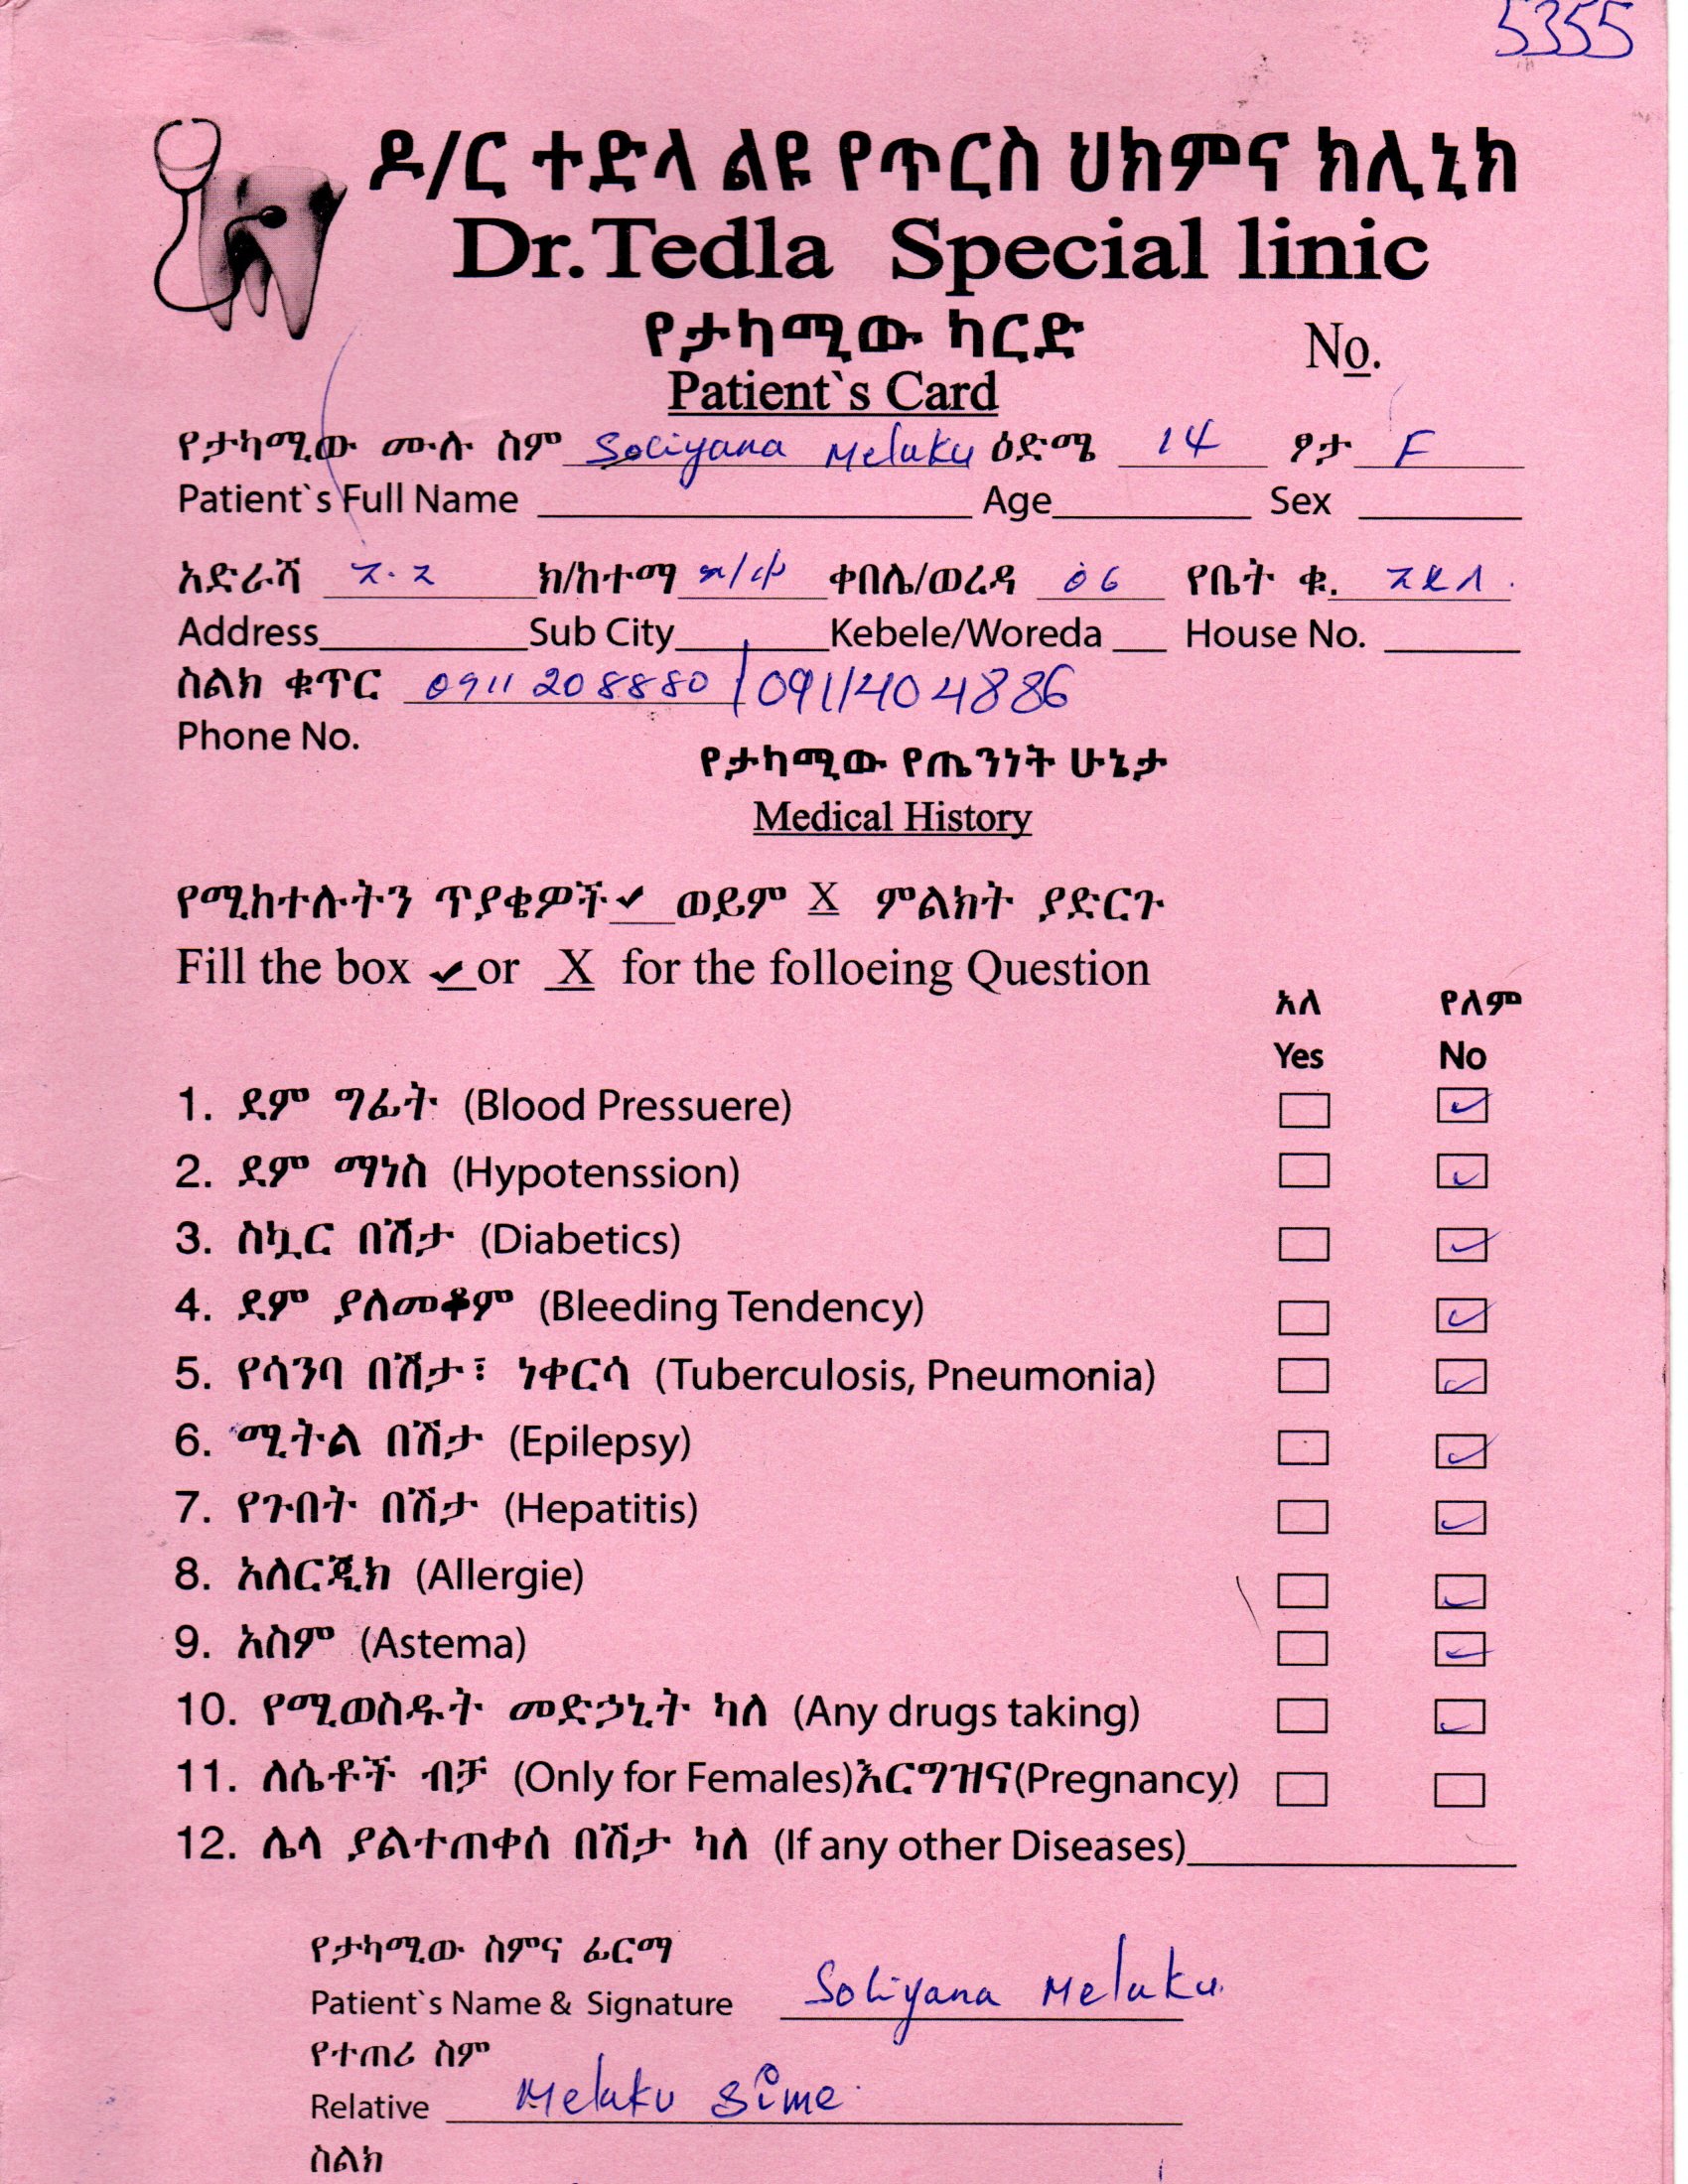 5355
ዶ/ር ተድላ ልዩ የጥርስ ህክምና ክሊኒክ
Dr.Tedla Special linic
የታካሚው ካርድ
No.
Patient`s Card
የታካሚው ሙሉ ስም Soliyana Melaku ዕድሜ 14 ፆታ F
Patient`s Full Name Age Sex
አድራሻ ክ/ከተማ ቀበሌ/ወረዳ 06 የቤት ቁ.
Address Sub City Kebele/Woreda House No.
ስልክ ቁጥር 0911 208880 / 0911404886
Phone No.
የታካሚው የጤንነት ሁኔታ
Medical History
የሚከተሉትን ጥያቄዎች ✓ ወይም X ምልክት ያድርጉ
Fill the box ✓ or X for the folloeing Question
አለ የለም
Yes No
1. ደም ግፊት (Blood Pressuere) ☐ ☑
2. ደም ማነስ (Hypotenssion) ☐ ☑
3. ስኳር በሽታ (Diabetics) ☐ ☑
4. ደም ያለመቆም (Bleeding Tendency) ☐ ☑
5. የሳንባ በሽታ፣ ነቀርሳ (Tuberculosis, Pneumonia) ☐ ☑
6. ሚትል በሽታ (Epilepsy) ☐ ☑
7. የጉበት በሽታ (Hepatitis) ☐ ☑
8. አለርጂክ (Allergie) ☐ ☑
9. አስም (Astema) ☐ ☑
10. የሚወስዱት መድኃኒት ካለ (Any drugs taking) ☐ ☑
11. ለሴቶች ብቻ (Only for Females)እርግዝና(Pregnancy) ☐ ☐
12. ሌላ ያልተጠቀሰ በሽታ ካለ (If any other Diseases)
የታካሚው ስምና ፊርማ
Patient`s Name & Signature Soliyana Melaku
የተጠሪ ስም
Relative Melaku Sime
ስልክ